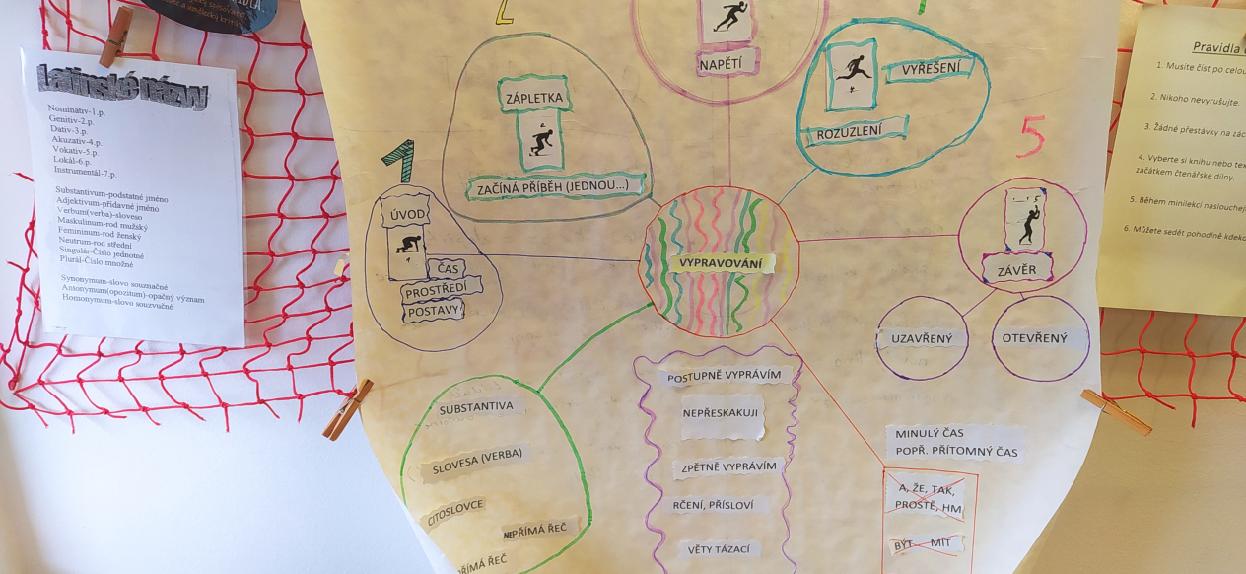 Latinské názvy
Nominativ-1.p.
Genitiv-2.p.
Dativ-3.p.
Akuzativ-4.p.
Vokativ-5.p.
Lokál-6.p.
Instrumentál-7.p.
Substantivum-podstatné jméno
Adjektivum-přídavné jméno
Verbum(verba)-sloveso
Maskulinum-rod mužský
Femininum-rod ženský
Neutrum-rod střední
Singulár-Číslo jednotné
Plurál-Číslo množné
Synonymum-slovo souznačné
Antonymum(opozitum)-opačný význam
Homonymum-slovo souzvučné
1
ÚVOD
ČAS
PROSTŘEDÍ
POSTAVY
2
ZÁPLETKA
ZAČÍNÁ PŘÍBĚH (JEDNOU...)
NAPĚTÍ
VYŘEŠENÍ
ROZUZLENÍ
5
ZÁVĚR
UZAVŘENÝ
OTEVŘENÝ
VYPRAVOVÁNÍ
SUBSTANTIVA
SLOVESA (VERBA)
CITOSLOVCE
NEPŘÍMÁ ŘEČ
PŘÍMÁ ŘEČ
POSTUPNĚ VYPRÁVÍM
NEPŘESKAKUJI
ZPĚTNĚ VYPRÁVÍM
RČENÍ, PŘÍSLOVÍ
VĚTY TÁZACÍ
MINULÝ ČAS
POPŘ. PŘÍTOMNÝ ČAS
A, ŽE, TAK,
PROSTĚ, HM
BÝT MIT
Pravidla
1. Musíte číst po celou
2. Nikoho nevyrušujte.
3. Žádné přestávky na
4. Vyberte si knihu nebo
začátkem čtenářské dílny.
5. Během minilekcí
6. Můžete sedět pohodlně